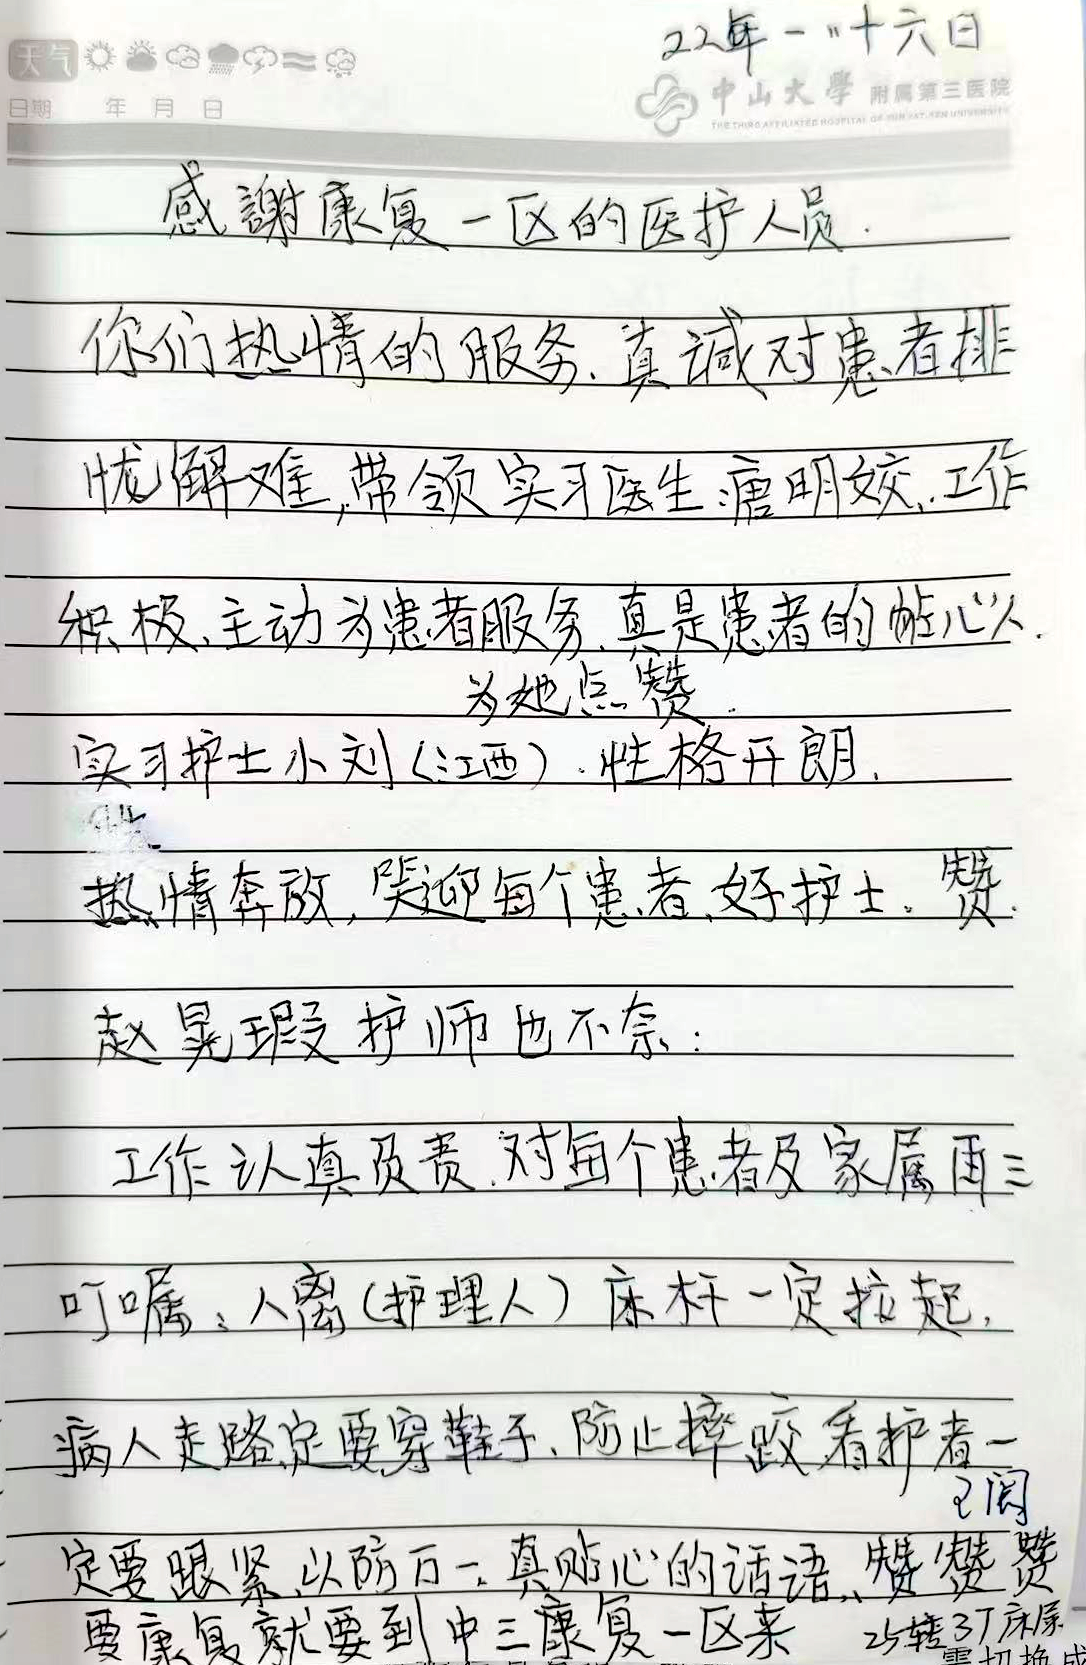 22年一"十六日
天气
日期 年 月 日
中山大學 附属第三医院
THE THIRD AFFILIATED HOSPITAL OF SUN YAT-SEN UNIVERSITY
感謝康复一区的医护人员.
你们热情的服务.真诚对患者排
忧解难,带领实习医生:唐明姣.工作
积极、主动为患者服务.真是患者的帖心人.
为她点赞.
实习护士小刘(江西).性格开朗.
热情奔放,笑迎每个患者,好护士。赞.
赵晃瑕护师也不奈:
工作认真负责.对每个患者及家属再三
叮嘱:人离(护理人)床杆一定拉起,
病人走路定要穿鞋子、防止摔跤,看护者一
已阅
定要跟紧、以防万一.真贴心的话语、赞赞赞
要康复就要到中三康复一区来
25转37床
需切换成